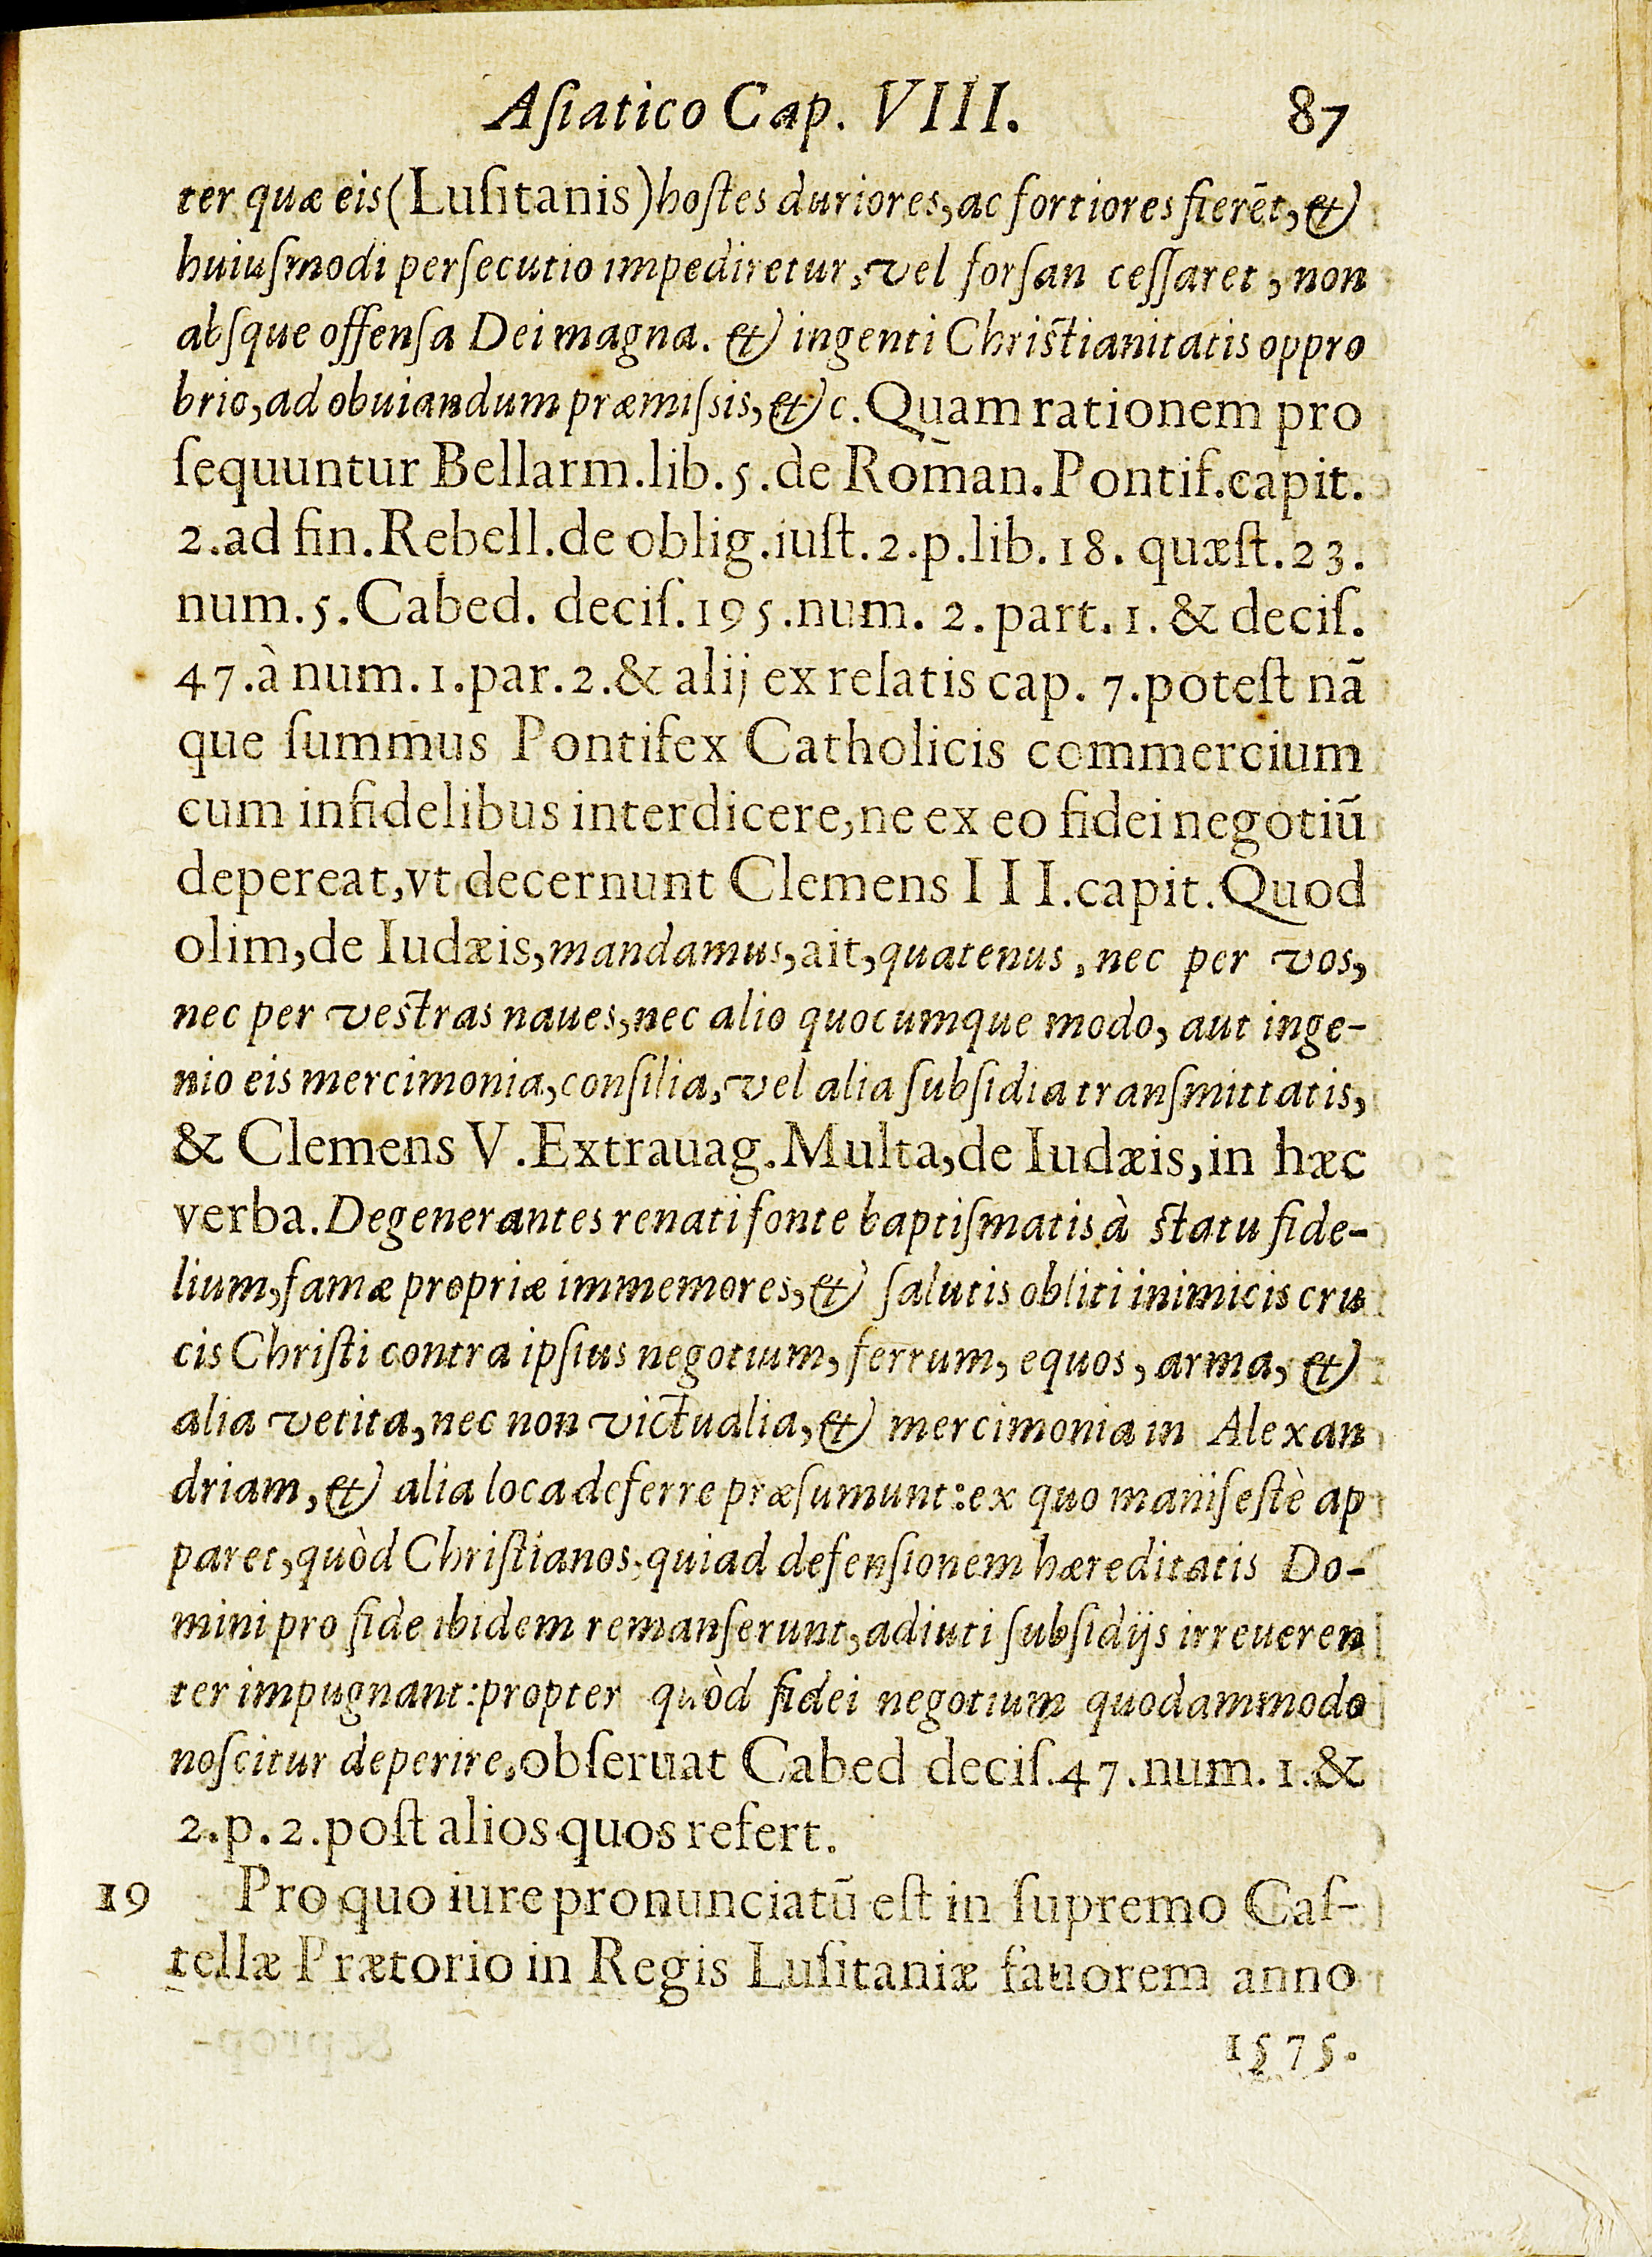 Aſiatico Cap. VIII. 87
ter quæ eis (Luſitanis) hoſtes duriores, ac fortiores fierēt, &
huiuſmodi perſecutio impediretur, vel forſan ceſſaret, non
abſque offenſa Dei magna. & ingenti Chriſtianitatis oppro
brio, ad obuiandum præmiſsis, &c. Quam rationem pro
ſequuntur Bellarm. lib. 5. de Roman. Pontif. capit.
2. ad fin. Rebell. de oblig. iuſt. 2. p. lib. 18. quæſt. 23.
num. 5. Cabed. deciſ. 195. num. 2. part. 1. & deciſ.
47. à num. 1. par. 2. & alij ex relatis cap. 7. poteſt nā
que ſummus Pontifex Catholicis commercium
cum infidelibus interdicere, ne ex eo fidei negotiū
depereat, vt decernunt Clemens III. capit. Quod
olim, de Iudæis, mandamus, ait, quatenus, nec per vos,
nec per veſtras naues, nec alio quocumque modo, aut inge-
nio eis mercimonia, conſilia, vel alia ſubſidia tranſmittatis,
& Clemens V. Extrauag. Multa, de Iudæis, in hæc
verba. Degenerantes renati fonte baptiſmatis à ſtatu fide-
lium, famæ propriæ immemores, & ſalutis obliti inimicis cru
cis Chriſti contra ipſius negotium, ferrum, equos, arma, &
alia vetita, nec non victualia, & mercimonia in Alexan
driam, & alia loca deferre præſumunt: ex quo manifeſtè ap
paret, quòd Chriſtianos, qui ad defenſionem hæreditatis Do-
mini pro fide ibidem remanſerunt, adiuti ſubſidijs irreueren
ter impugnant: propter quòd fidei negotium quodammodo
noſcitur deperire, obſeruat Cabed deciſ. 47. num. 1. &
2. p. 2. poſt alios quos refert.
19 Pro quo iure pronunciatū eſt in ſupremo Caſ-
tellæ Prætorio in Regis Luſitaniæ fauorem anno
1575.